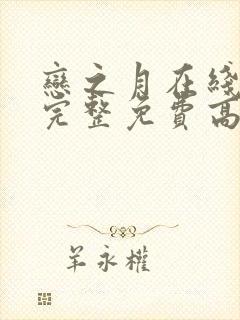 戀之月在綫
完整免費高
羊永權